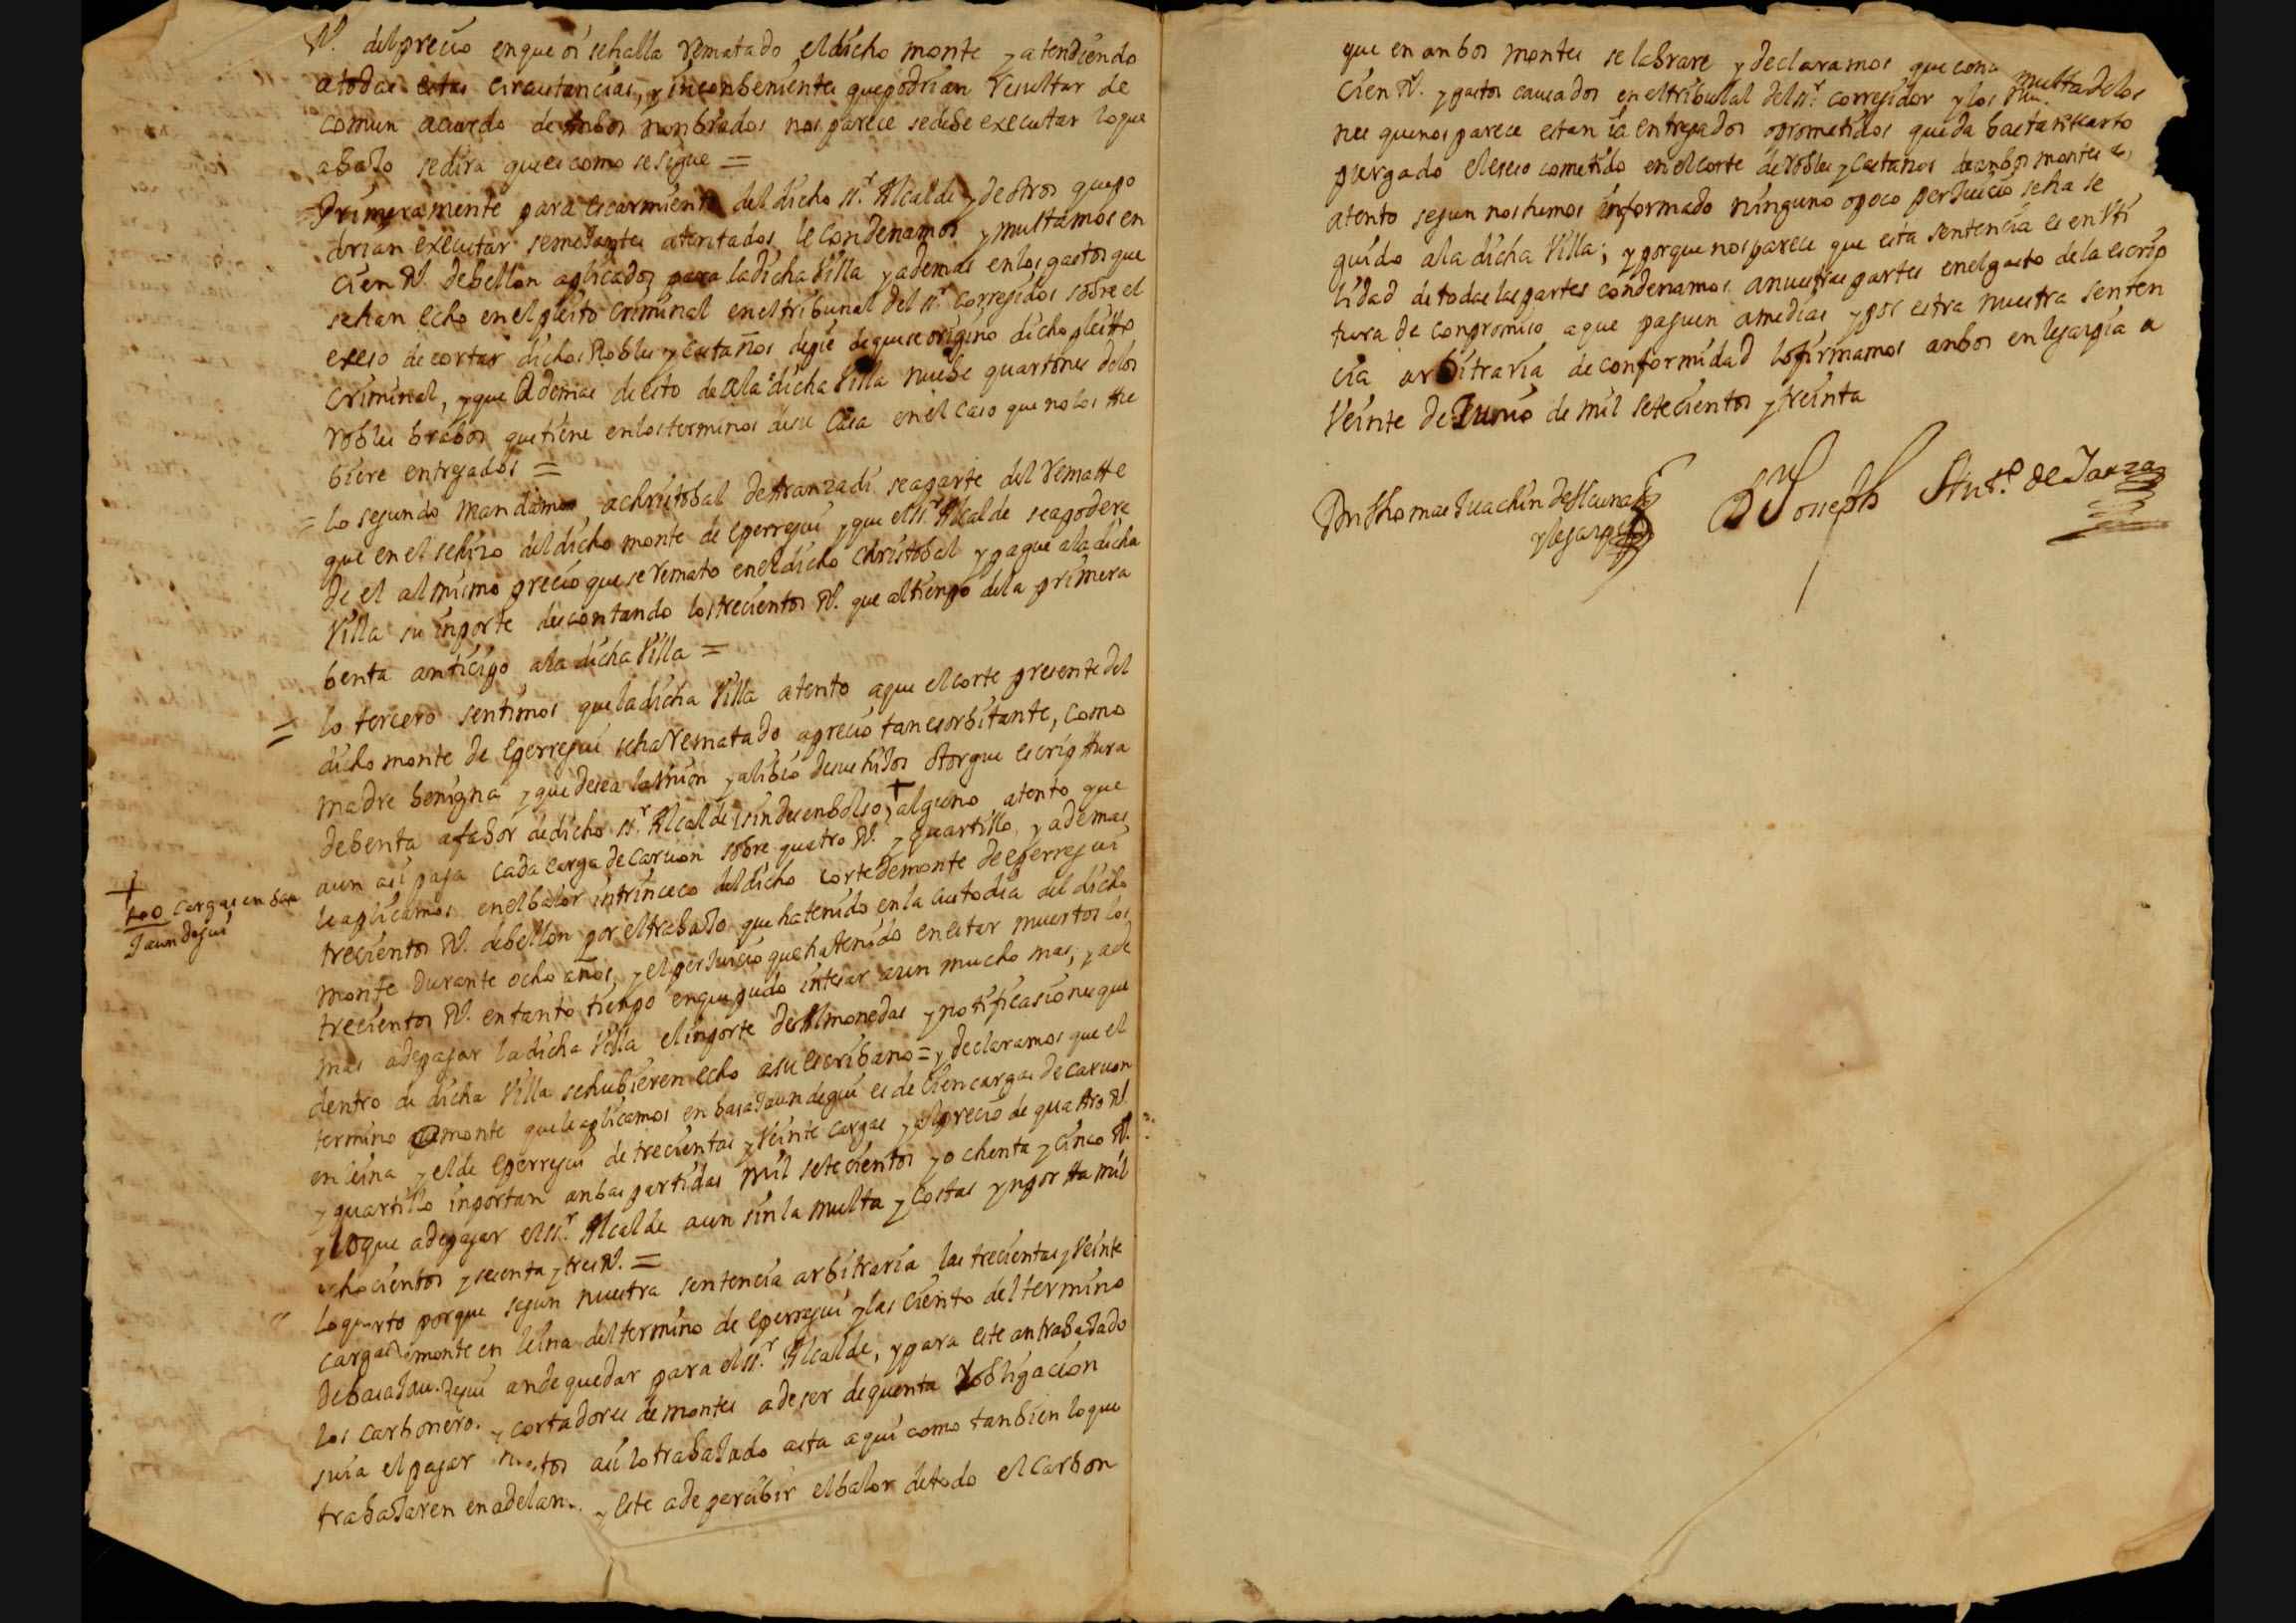 Rˢ. del precio en que oi se halla rematado el dicho monte y atendiendo
a todas estas circustancias, y inconbenientes que podrian resultar de
comun acuerdo de anbos nonbrados nos parece se debe executar lo que
abaJo se dira que es como se sigue =
= Primeramente para escarmiento del dicho sʳ. Alcalde y de otros que po
drian executar semeJantes atentados le condenamos y multamos en
Cien Rˢ. de bellon aplicados para la dicha Villa y ademas en los gastos que
se han echo en el pleito Criminal en el tribunal del sʳ. corregidor sobre el
exeso de cortar dichos Robles y Castaños de que se origino dicho pleitto
Criminal, y que ademas de esto de a la dicha Villa nuebe quartones de los
robles brabos que tiene en los terminos de su Casa en el caso que no los hu
biere entregados =
= lo segundo mandamos a christobal de aranzadi se aparte del rematte
que en el se hizo del dicho monte de eperregui y que el sʳ. Alcalde se apodere
de el al mismo precio que se remato en el dicho christobal y pague a la dicha
Villa su inporte descontando los trecientos Rˢ. que al tienpo de la primera
benta anticipo a la dicha Villa =
= lo tercero sentimos que la dicha Villa atento a que el corte presente del
dicho monte de eperregui se ha rematado a precio tan esorbitante, como
madre benigna y que desea la union y alibio de sus hiJos otorgue escripttura
de benta a fabor de dicho sʳ. Alcalde sin desenbolso + alguno atento que
aun asi paga cada carga de caruon sobre quatro Rˢ. y quartillo, y ademas
le aplicamos en el balor intrinceco del dicho corte de monte de eperregui
+
100 cargas en basa
Jaundegui
trecientos Rˢ. de bellon por el trabaJo que ha tenido en la custodia del dicho
monte durante ocho años, y el perJuicio que ha tenido en estar muertos los
trecientos Rˢ. en tanto tienpo en que pudo intesar aun mucho mas; y ade
mas a de pagar la dicha Villa el inporte de Almonedas y notificasiones que
dentro de dicha Villa se hubieren echo a su escribano = y declaramos que el
termino de monte que le aplicamos en basaJaundegui es de Cien cargas de caruon
en leina y el de eperregui de trecientas y Veinte cargas y al precio de quattro Rˢ.
y quartillo inportan anbas partidas mil setecientos y ochenta y cinco Rˢ.
y lo que a de pagar el sʳ. Alcalde aun sin la multa y costas ynportta mil
ochocientos y sesenta y tres Rˢ. =
= Lo quarto porque segun nuestra sentencia arbitraria las trecientas y Veinte
cargas de monte en leina del termino de eperregui y las ciento del termino
de basaJaundegui an de quedar para el sʳ. Alcalde, y para este an trabaJado
los carboneros y cortadores de montes a de ser de quenta y obligacion
suia el pagar a estos asi lo trabaJado asta aqui como tanbien lo que
trabaJaren en adelante y este a de percibir el balor de todo el carbon
que en anbos montes se labrare y declaramos que con a multa de los
Cien Rˢ. y gastos causados en el tribunal del sʳ. corregidor y los
nes que nos parece estan ia entregados o prometidos queda bastanttemente
purgado el exeso cometido en el corte de robles y Castaños de anbos montes
atento segun nos hemos informado ninguno o poco perJuicio se ha se
guido a la dicha Villa; y porque nos parece que esta sentencia es en Vti
lidad de todas las partes condenamos a nuestras partes en el gasto de la escrip
tura de conpromiso a que paguen a medias y por estra nuestra senten
cia arbitraria de conformidad lo firmamos anbos en lesarpia a
Veinte de Junio de mil setecientos y treinta
Don Thomas Juachin de
y lesarpia
Dⁿ Joseph Antᵒ. de Jauza